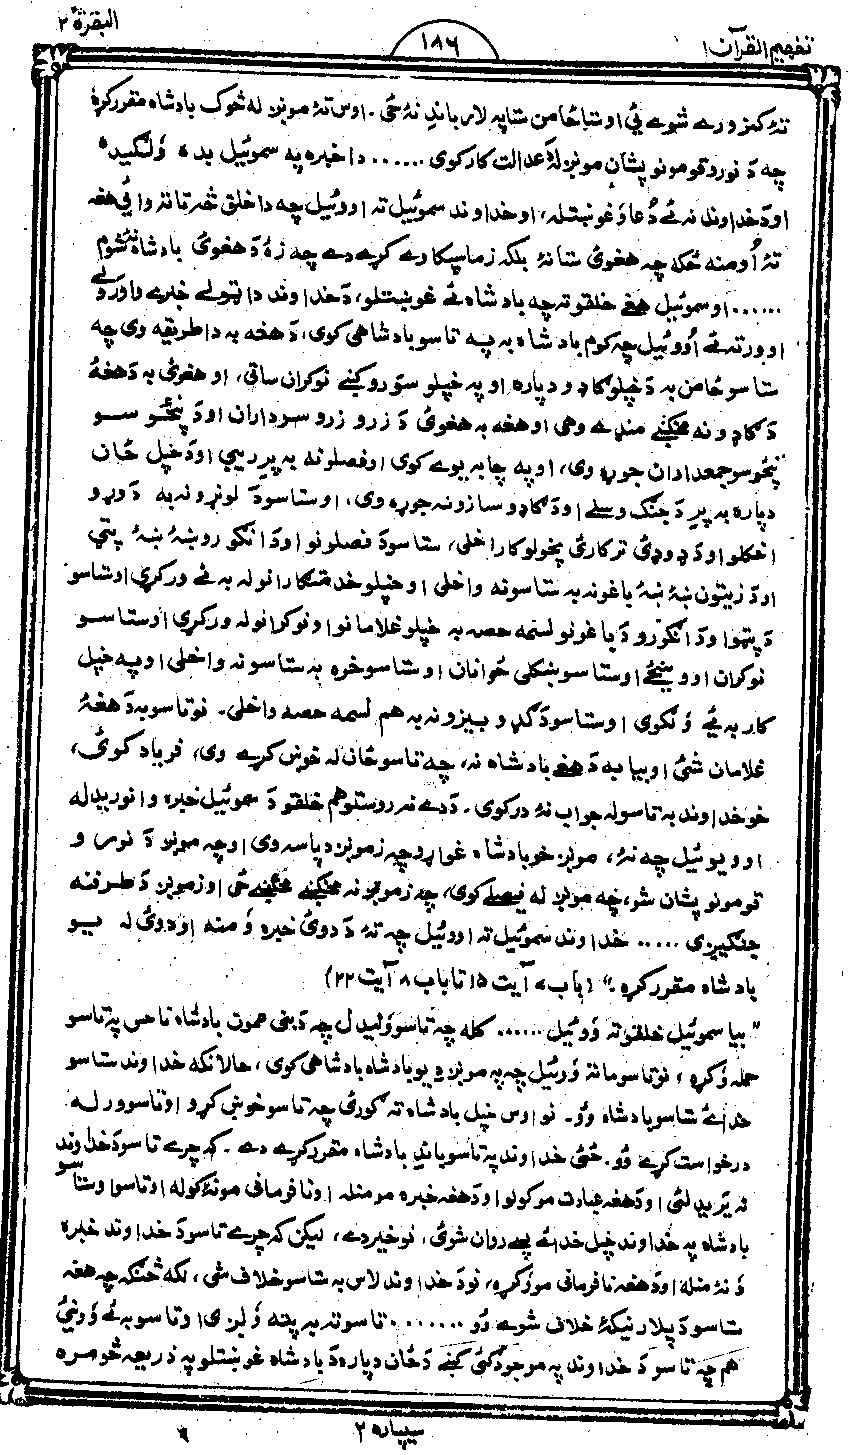 تفهیم القرآن ۱
۱۸۶
البقرة ۲
تۀ کمزورے شوے ئی اوستا ځامن ستا په لار باندِ نۀ ځی۔ اوس تۀ مونږ له څوک بادشاه مقرر کړه
چه دَ نورو قومونو پشان مونږ له عدالت کار کوی ...... دا خبره په سموئیل بده وَلګیده
اودَ خداوند نه ئے دُعا وَغوښتله، او خداوند سموئیل ته اووئیل چه دا خلق څه تا ته وائی هغه
تۀ اُومنه ځکه چه هغوئ ستا نۀ بلکه زما سپکاوے کړے دے چه زۀ دَ هغوئ بادشاه نۀ شوم
...... او سموئیل هغے خلقو ته چه بادشاه ئے غوښتلو، دَ خداوند دا ټولے خبرے واورولے
او ورته ئے اُووئیل چه کوم بادشاه به په تاسو بادشاهی کوی، دَ هغه به دا طریقه وی چه
ستاسو ځامن به دَ خپلو ګاډو دپاره او په خپلو سورو کښے نوکران ساتی، او هغوئ به دَ هغۀ
دَ ګاډو نه مخکښے منډے وهی او هغه به هغوئ دَ زرو زرو سرداران اودَ پنځو سو
پنځوسو جمعداران جوړوی، او په چا به یوے کوی او فصلونه به پرے ریبی اودَ خپل ځان
دپاره به پرے دَ جنګ وسلے اودَ ګاډو سازونه جوړوی، او ستاسو دَ لوڼرو نه به دَ وړو
اخکلو اودَ ډوډئ ترکارئ پخولو کار اخلی، ستاسو دَ فصلونو اودَ انګورو ښۀ ښۀ پټی
اودَ زیتون ښۀ ښۀ باغونه به ستاسو نه واخلی او خپلو خدمتګارانو له به ئے ورکړی او ستاسو
دَ پټو اودَ انګورو دَ باغونو لسمه حصه به خپلو غلامانو او نوکرانو له ورکړی او ستاسو
نوکران او وینځے او ستاسو ښکلی ځوانان او ستاسو خره به ستاسو نه واخلی او په خپل
کار به ئے وَلګوی او ستاسو دَ ګډو بیزو نه به هم لسمه حصه واخلی۔ نو تاسو به دَ هغۀ
غلامان شئ او بیا به دَ هغے بادشاه نه، چه تاسو ځان له خوښ کړے وی، فریاد کوئ،
خو خداوند به تاسو له جواب نۀ درکوی۔ دَ دے نه وروستو هم خلقو دَ سموئیل خبره وانوریدله
او وئیل چه نۀ، مونږ خو بادشاه غواړو چه زمونږ دپاسه وی او چه مونږ دَ نورو
قومونو پشان شو، چه مونږ له فیصلے کوی، چه زمونږ نه مخکښے مخکښے ځی او زمونږ دَ طرفنه
جنګیږی ..... خداوند سموئیل ته اووئیل چه تۀ دَ دوئ خبره وَمنه اودوئ له یو
بادشاه مقرر کړه۔" (باب ۷ آیت ۱۵ تا باب ۸ آیت ۲۲)
"بیا سموئیل خلقو ته وَوئیل ...... کله چه تاسو وَلیدل چه دَ بنی عمون بادشاه ناحس په تاسو
حمله وَکړه، نو تاسو ما ته وَوئیل چه په مونږ دِ یو بادشاه بادشاهی کوی، حالانکه خداوند ستاسو
خدائے ستاسو بادشاه وُو۔ نو اوس خپل بادشاه ته ګورئ چه تاسو خوښ کړو او تاسو ورله
درخواست کړے وُو۔ ځئ خداوند په تاسو باندِ بادشاه مقرر کړے دے۔ که چرے تاسو دَ خداوند
نه یریدلئ اودَ هغه عبادت مو کولو اودَ هغه خبره مو منله او نافرمانی مو نۀ کوله او تاسو او ستاسو
بادشاه په خداوند خپل خدائے پسے روان شوئ، نو خیر دے، لیکن که چرے تاسو دَ خداوند خبره
وَ نۀ منله اودَ هغه نافرمانی مو وَکړه، نو دَ خداوند لاس به ستاسو خلاف شی، لکه څنګه چه هغه
ستاسو دَ پلار نیکۀ خلاف شوے وُو ....... تاسو ته به پته وَلږی او تاسو به ئے وَوینئ
هم چه تاسو دَ خداوند په موجودګئ کښے دَ ځان دپاره دَ بادشاه غوښتلو په ذریعه څومره
سیپاره ۲